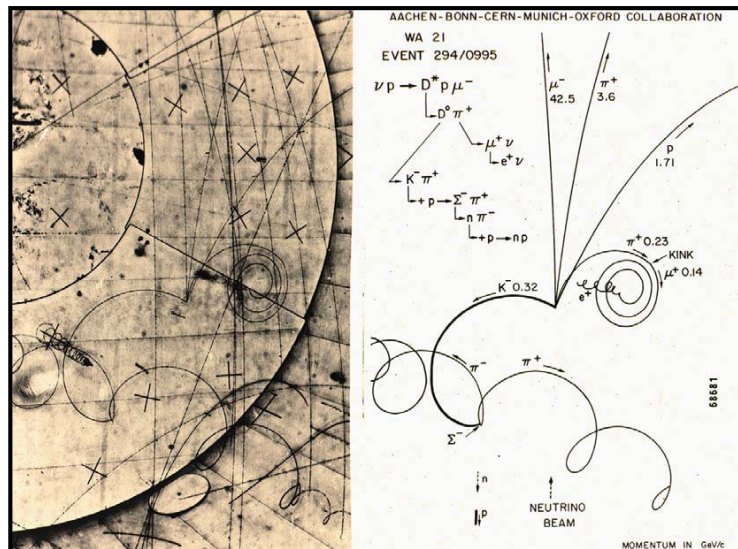 AACHEN-BONN-CERN-MUNICH-OXFORD COLLABORATION
WA 21
EVENT 294/0995
νp → D* p μ⁻
D⁰ π⁺
μ⁺ ν
e⁺ ν
K⁻ π⁺
+p → Σ⁻ π⁺
n π⁻
+p → np
μ⁻
42.5
π⁺
3.6
p
1.71
π⁺ 0.23
KINK
μ⁺ 0.14
e⁺
K⁻ 0.32
π⁻
π⁺
Σ⁻
n
p
NEUTRINO
BEAM
68681
MOMENTUM IN GeV/c